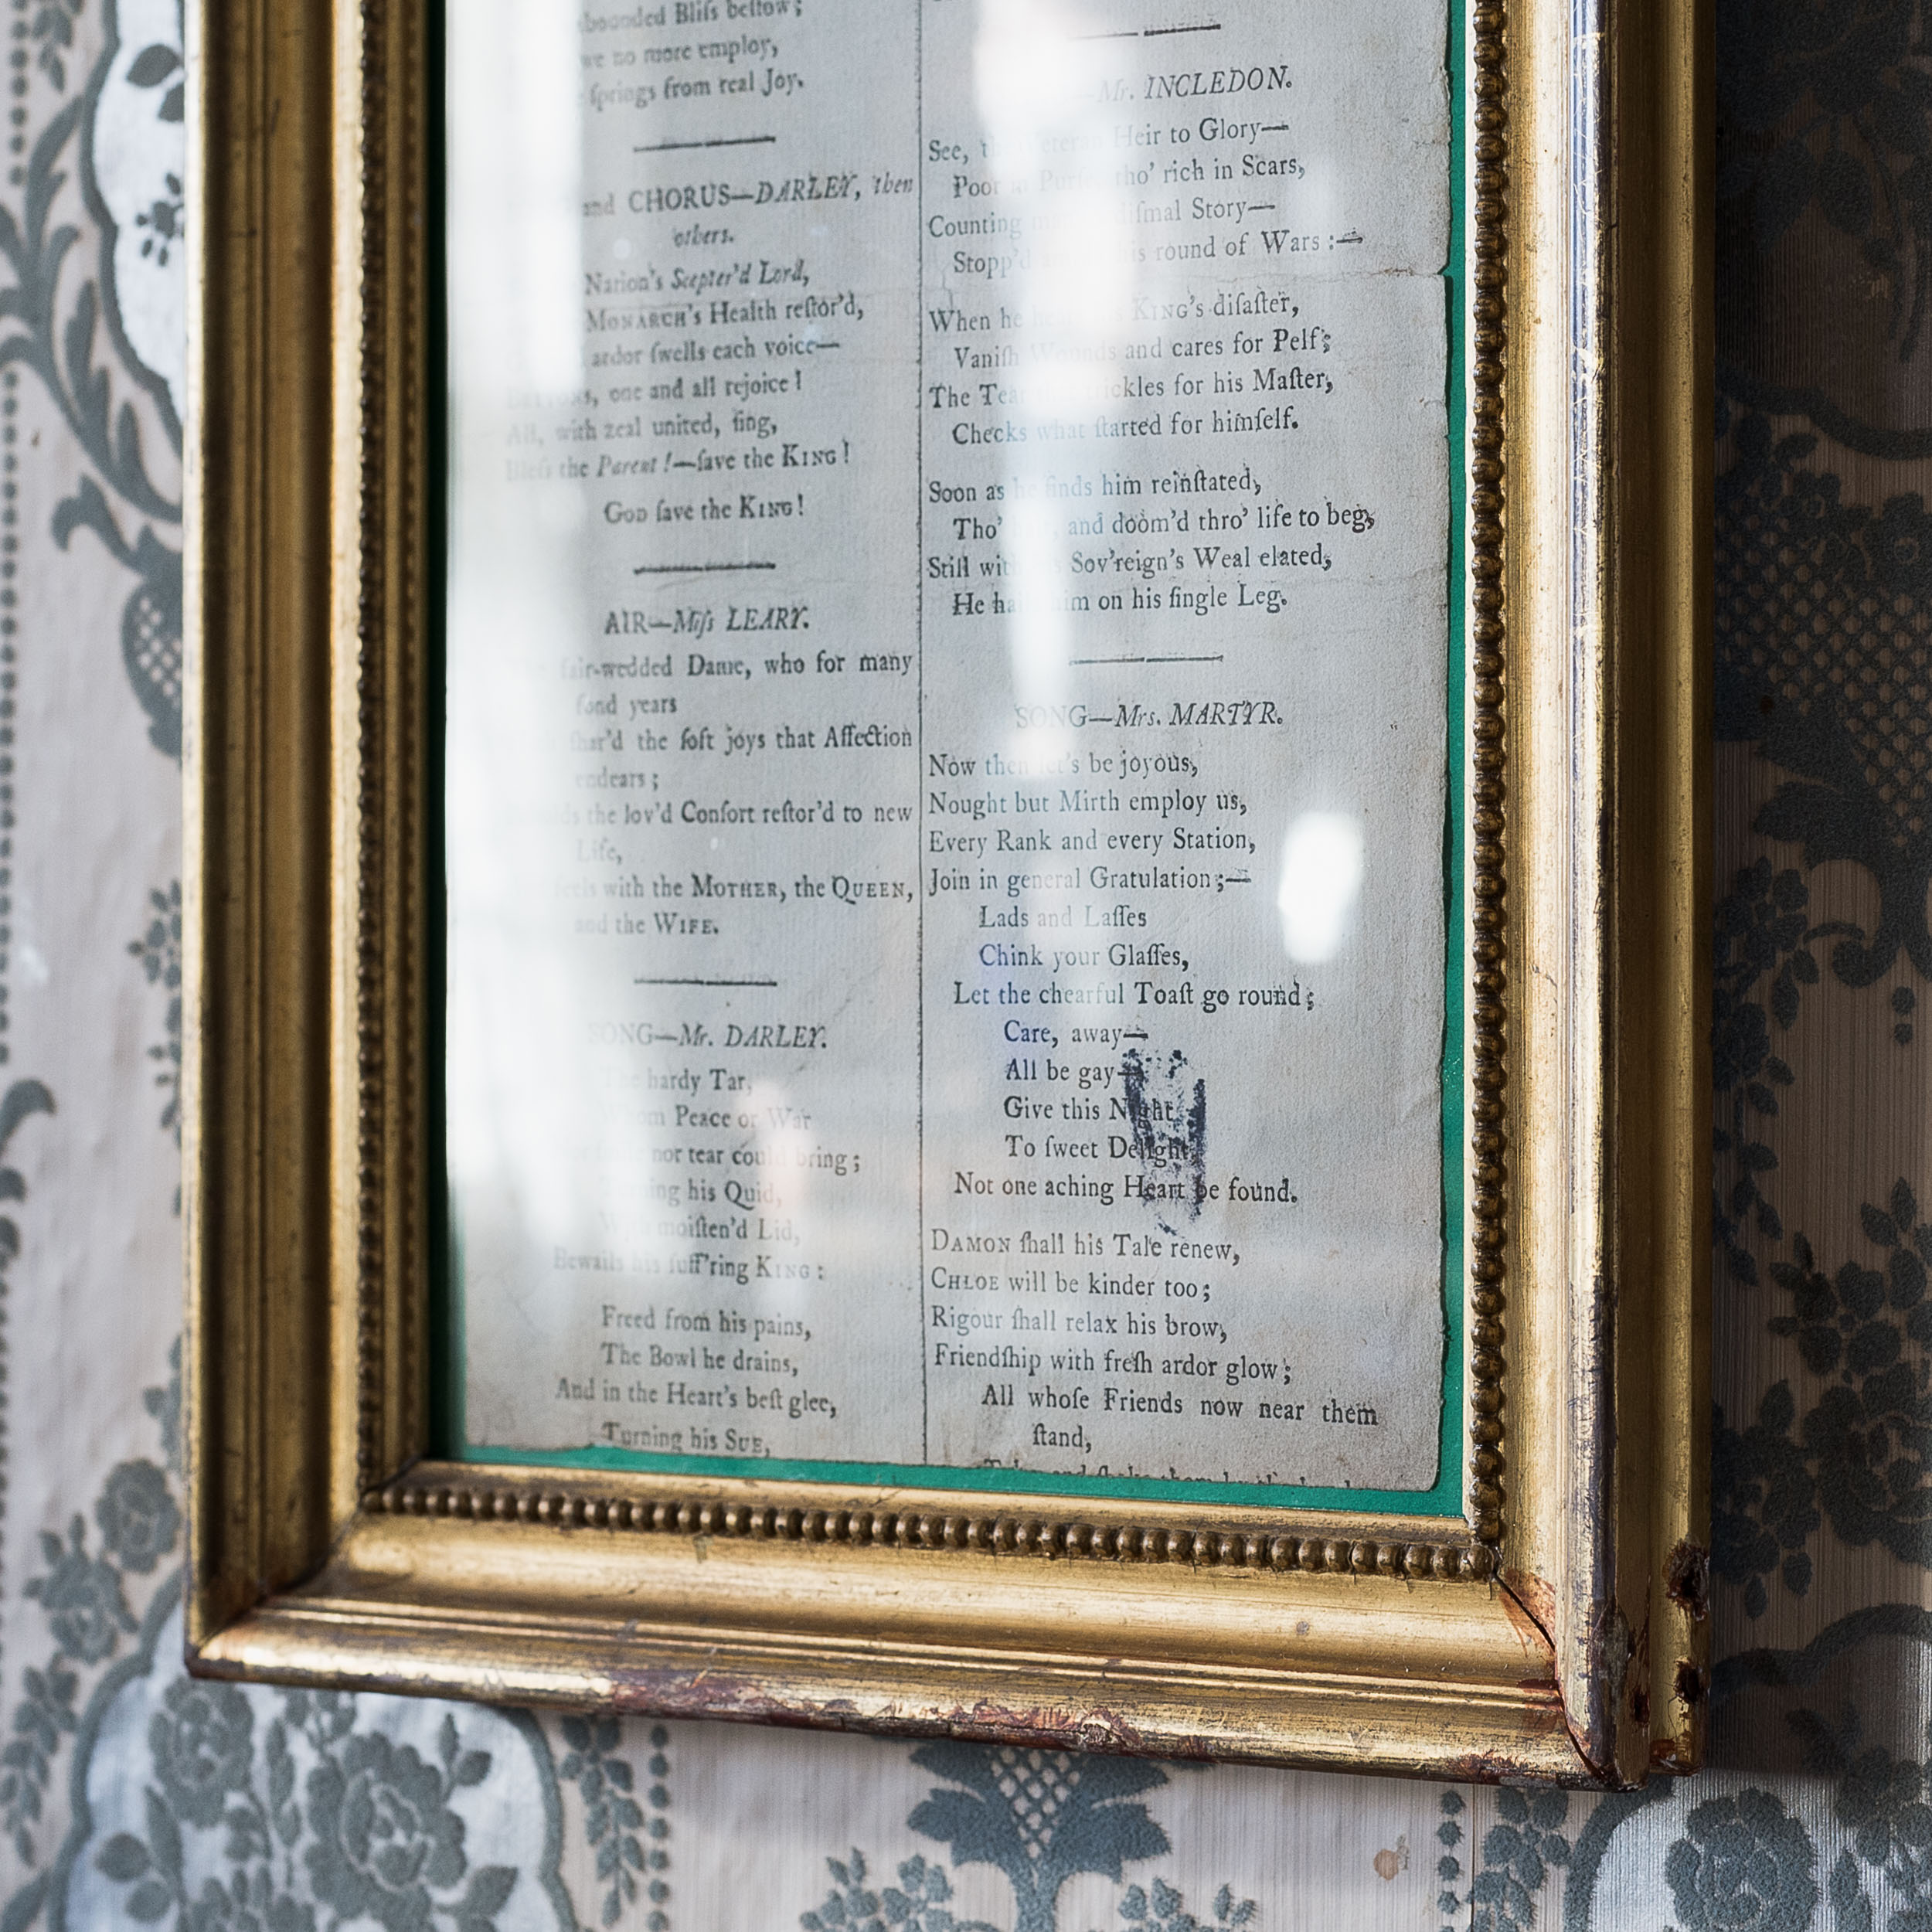 Bliſs beſtow;
no more employ,
ſprings from real Joy.
and CHORUS—DARLEY, then
others.
Nation's Scepter'd Lord,
MONARCH's Health reſtor'd,
ardor ſwells each voice—
one and all rejoice!
All, with zeal united, ſing,
Bleſs the Parent!—ſave the KING!
GOD ſave the KING!
AIR—Miſs LEARY.
fair-wedded Dame, who for many
fond years
the ſoft joys that Affection
endears;
the lov'd Conſort reſtor'd to new
Life,
with the MOTHER, the QUEEN,
and the WIFE.
SONG—Mr. DARLEY.
The hardy Tar,
Peace or War
nor tear could bring;
his Quid,
moiſten'd Lid,
Bewails his ſuff'ring KING:
Freed from his pains,
The Bowl he drains,
And in the Heart's beſt glee,
Turning his SUE,
Mr. INCLEDON.
See, Heir to Glory—
Poor tho' rich in Scars,
Counting diſmal Story—
Stopp'd round of Wars:—
When he KING's diſaſter,
Vaniſh Wounds and cares for Pelf;
The Tear trickles for his Maſter,
Checks what ſtarted for himſelf.
Soon as he finds him reinſtated,
Tho' and doom'd thro' life to beg,
Still Sov'reign's Weal elated,
He on his ſingle Leg.
SONG—Mrs. MARTYR.
Now then let's be joyous,
Nought but Mirth employ us,
Every Rank and every Station,
Join in general Gratulation;—
Lads and Laſſes
Chink your Glaſſes,
Let the chearful Toaſt go round;
Care, away—
All be gay—
Give this Night
To ſweet Delight,
Not one aching Heart be found.
DAMON ſhall his Tale renew,
CHLOE will be kinder too;
Rigour ſhall relax his brow,
Friendſhip with freſh ardor glow;
All whoſe Friends now near them
ſtand,